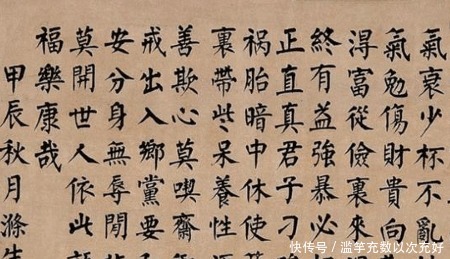 氣衰少杯不亂
氣勉傷財貴向
淂富從儉裏來
終有益強暴必
正直真君子刁
禍胎暗中休使
裏帶些呆養性
善欺心莫喫齋
戒出入鄉黨要
安分身無辱閒
莫開世人依此
福樂康哉
甲辰秋月滌生
快传号 / 滥竽充数以次充好